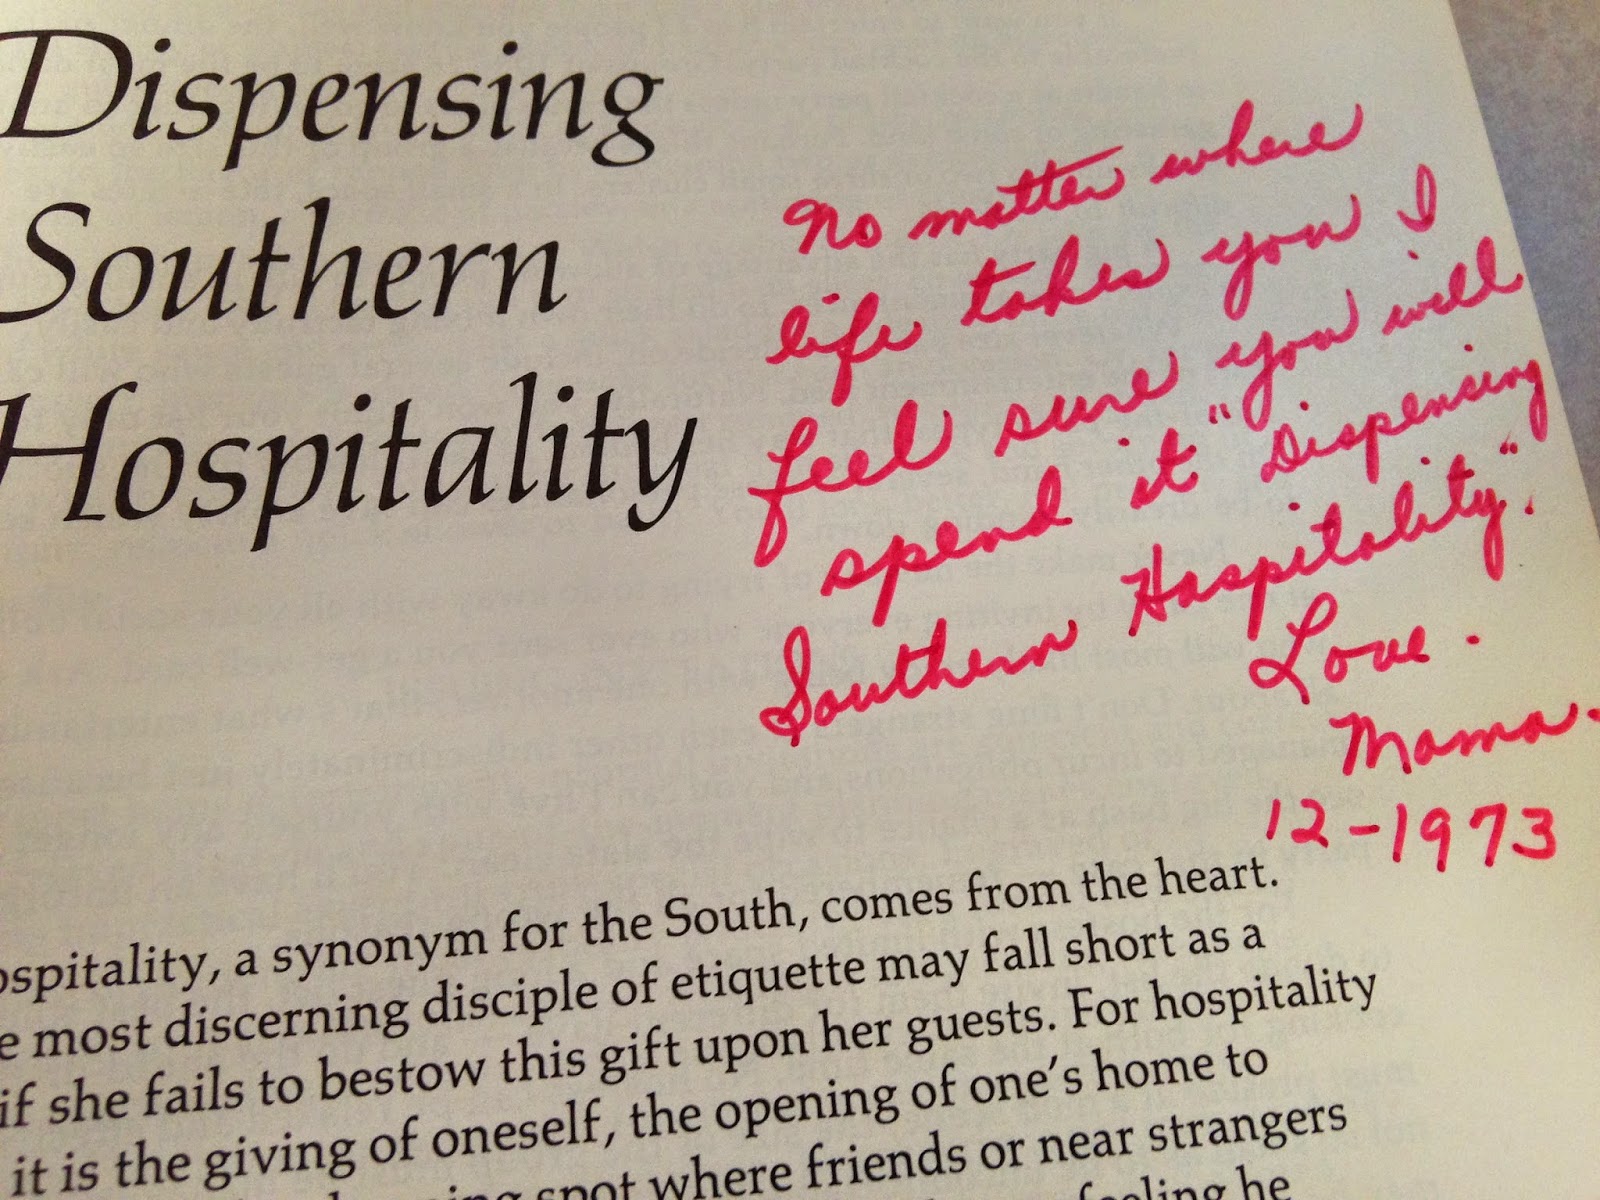 Dispensing
Southern
Hospitality
No matter where
life takes you I
feel sure you will
spend it "Dispensing
Southern Hospitality."
Love.
Mama.
12-1973
ospitality, a synonym for the South, comes from the heart.
e most discerning disciple of etiquette may fall short as a
if she fails to bestow this gift upon her guests. For hospitality
it is the giving of oneself, the opening of one's home to
spot where friends or near strangers
feeling he